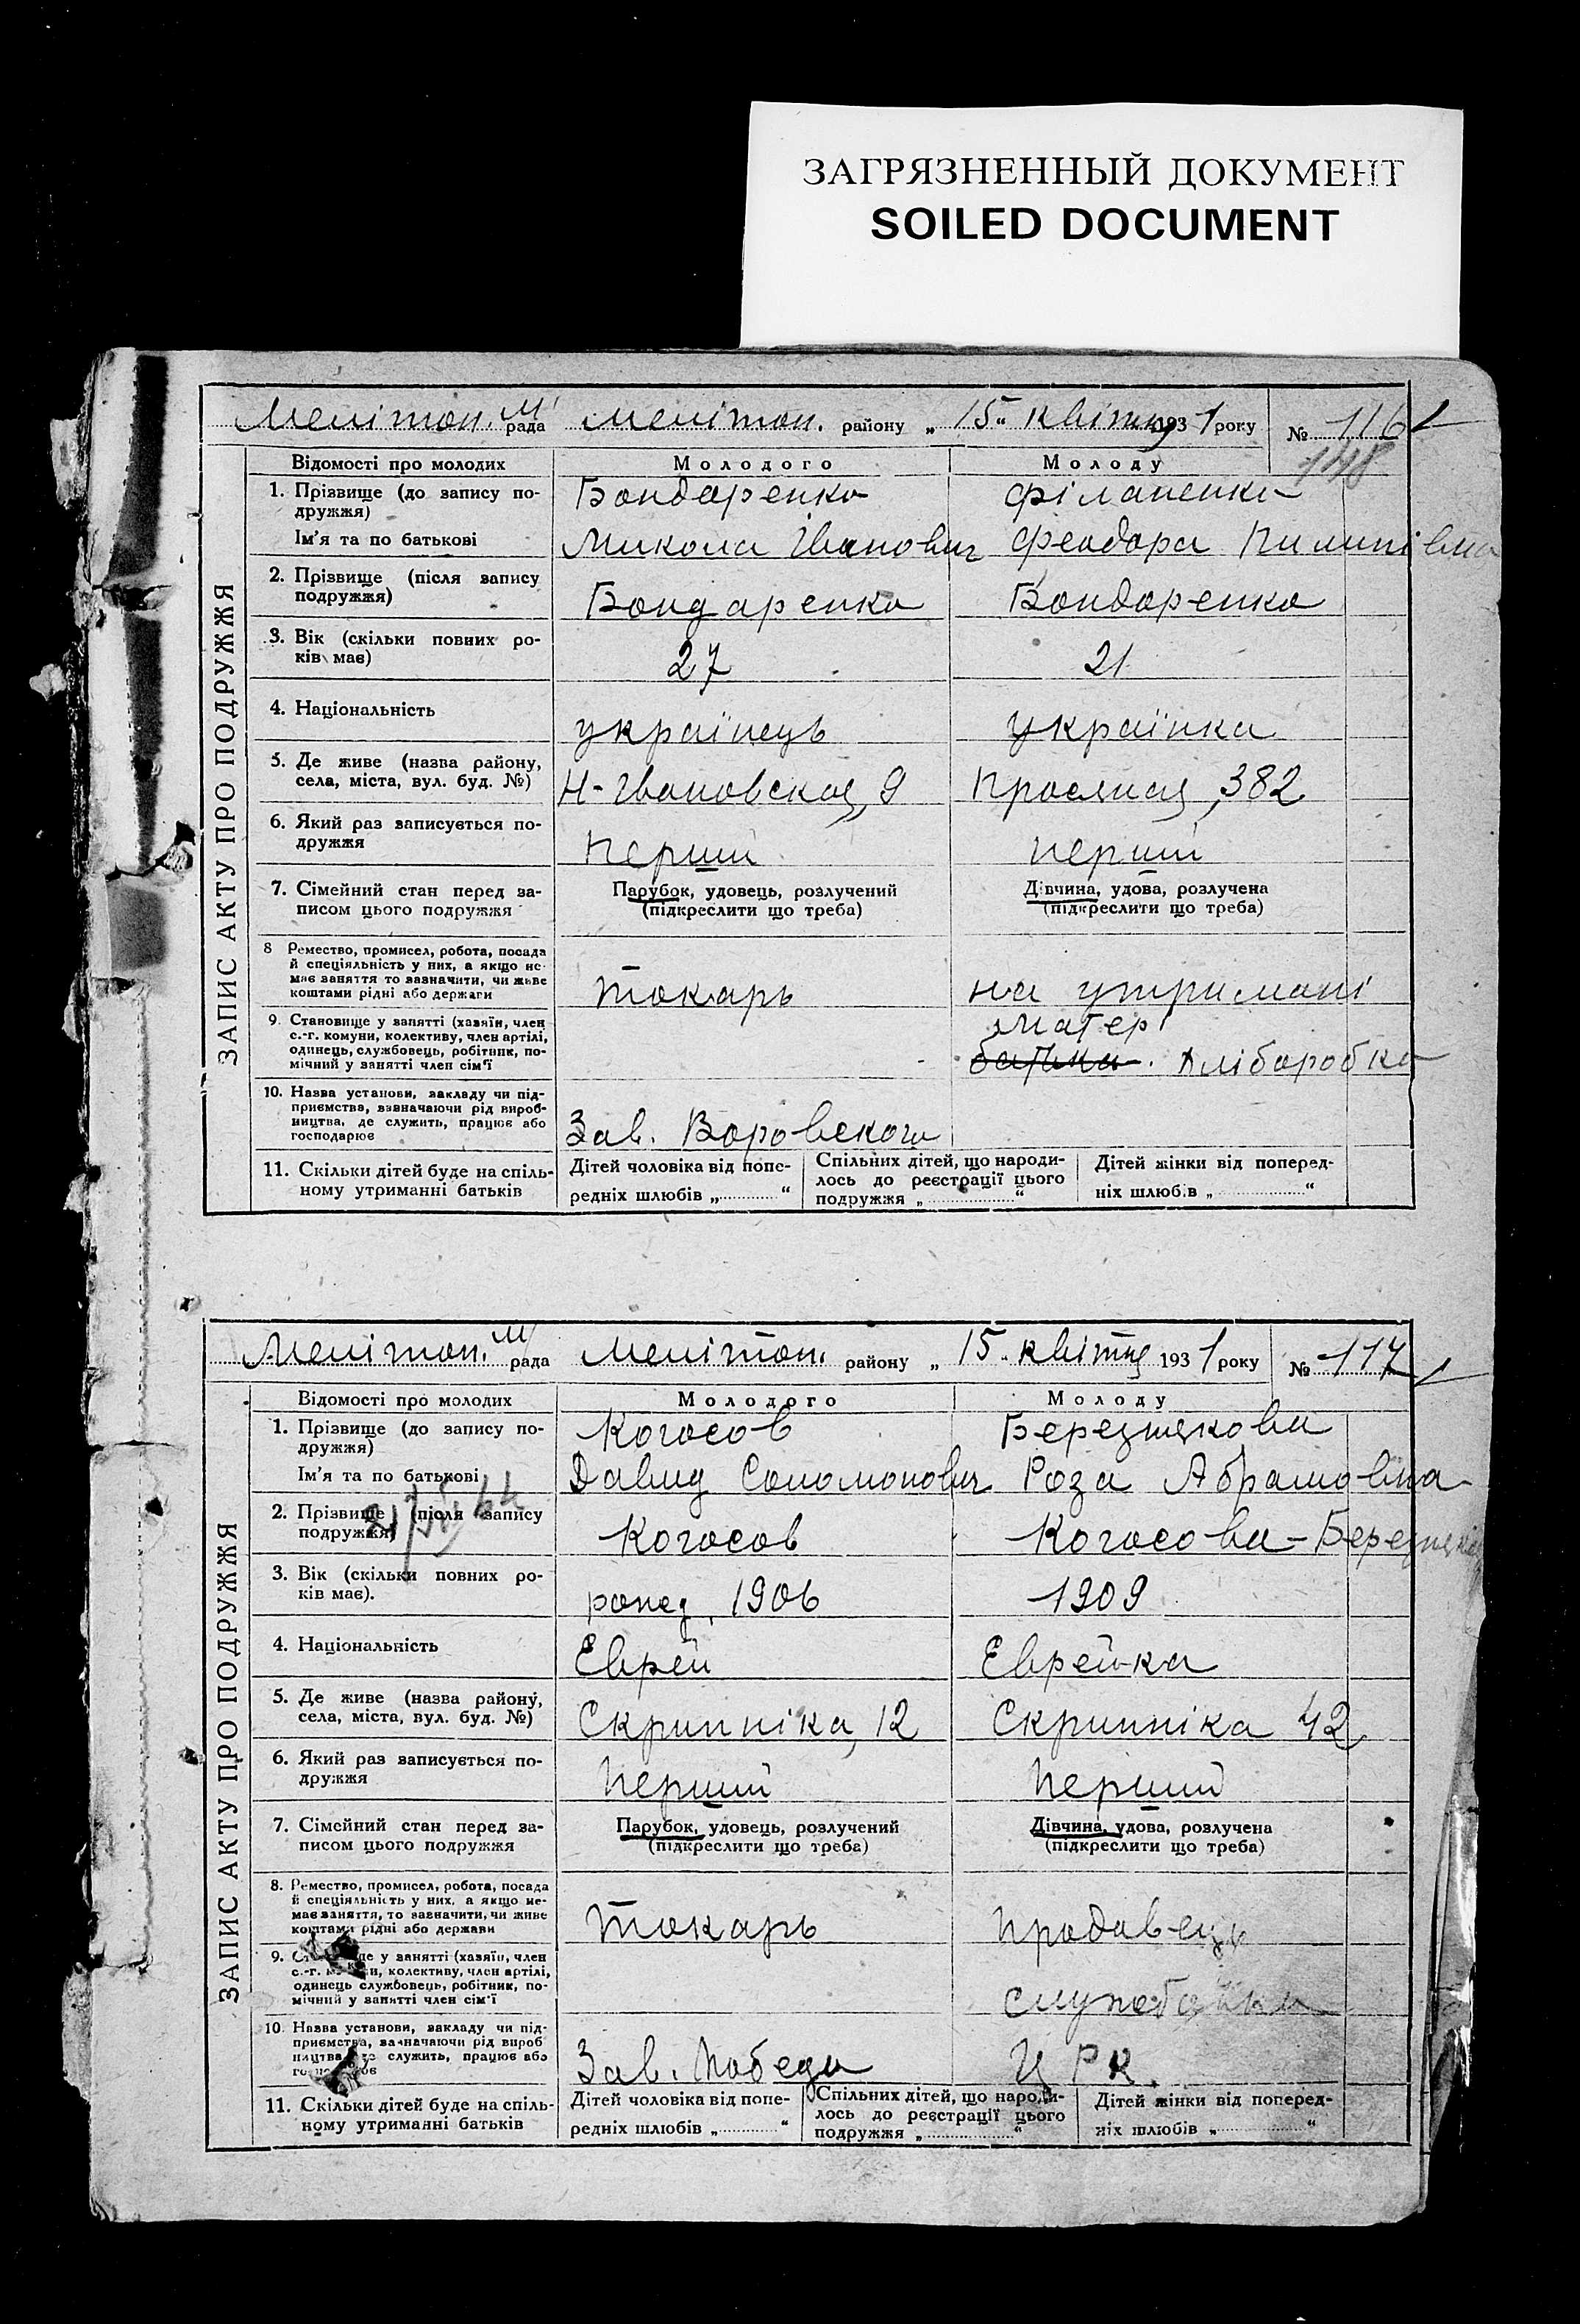 ЗАГРЯЗНЕННЫЙ ДОКУМЕНТ
SOILED DOCUMENT
ЗАПИС АКТУ ПРО ПОДРУЖЖЯ
Мелітоп. М рада Мелітоп. району „15“ квітня 1931 року № 116
148
Відомості про молодих Молодого Молоду
1. Прізвище (до запису подружжя) Бондаренко Філаненко
Ім'я та по батькові Микола Іванович Феодора Пилипівна
2. Прізвище (після запису подружжя) Бондаренко Бондаренко
3. Вік (скільки повних років має) 27 21
4. Національність українець українка
5. Де живе (назва району, села, міста, вул. буд. №) Н-Івановская, 9 382
6. Який раз записується подружжя перший перший
7. Сімейний стан перед записом цього подружжя Парубок, удовець, розлучений (підкреслити що треба) Дівчина, удова, розлучена (підкреслити що треба)
8 Ремество, промисел, робота, посада й спеціяльність у них, а якщо не має заняття то зазначити, чи живе коштами рідні або держави токарь на утримані
матер
9. Становище у занятті (хазяїн, член с.-г. комуни, колективу, член артілі, одинець, службовець, робітник, помічний у занятті член сім'ї батька. Хліборобка
10. Назва установи, закладу чи підприємства, зазначаючи рід виробництва, де служить, працює або господарює Зав. Воровского
11. Скільки дітей буде на спільному утриманні батьків Дітей чоловіка від попередніх шлюбів „ “ Спільних дітей, що народилось до реєстрації цього подружжя „ “ Дітей жінки від попередніх шлюбів „ “
ЗАПИС АКТУ ПРО ПОДРУЖЖЯ
Мелітоп. М рада Мелітоп. району „15“ квітня 1931 року № 117
Відомості про молодих Молодого Молоду
1. Прізвище (до запису подружжя) Когосов Березнякова
Ім'я та по батькові Давид Соломонович Роза Абрамовна
2. Прізвище (після запису подружжя) Когосов Когосова-
3. Вік (скільки повних років має). 1906 1909
4. Національність Еврей Еврейка
5. Де живе (назва району, села, міста, вул. буд. №) Скрипніка, 12 Скрипніка 42
6. Який раз записується подружжя перший перший
7. Сімейний стан перед записом цього подружжя Парубок, удовець, розлучений (підкреслити що треба) Дівчина, удова, розлучена (підкреслити що треба)
8. Ремество, промисел, робота, посада й спеціяльність у них, а якщо не має заняття, то зазначити, чи живе коштами рідні або держави токарь продавець
9. у занятті (хазяїн, член с.-г. колективу, член артілі, одинець службовець, робітник, помічний у занятті член сім'ї
10. Назва установи, закладу чи підприємства, зазначаючи рід виробництва служить, працює або Зав. Победа ЦРК.
11. Скільки дітей буде на спільному утриманні батьків Дітей чоловіка від попередніх шлюбів „ “ Спільних дітей, що народилось до реєстрації цього подружжя „ “ Дітей жінки від попередніх шлюбів „ “